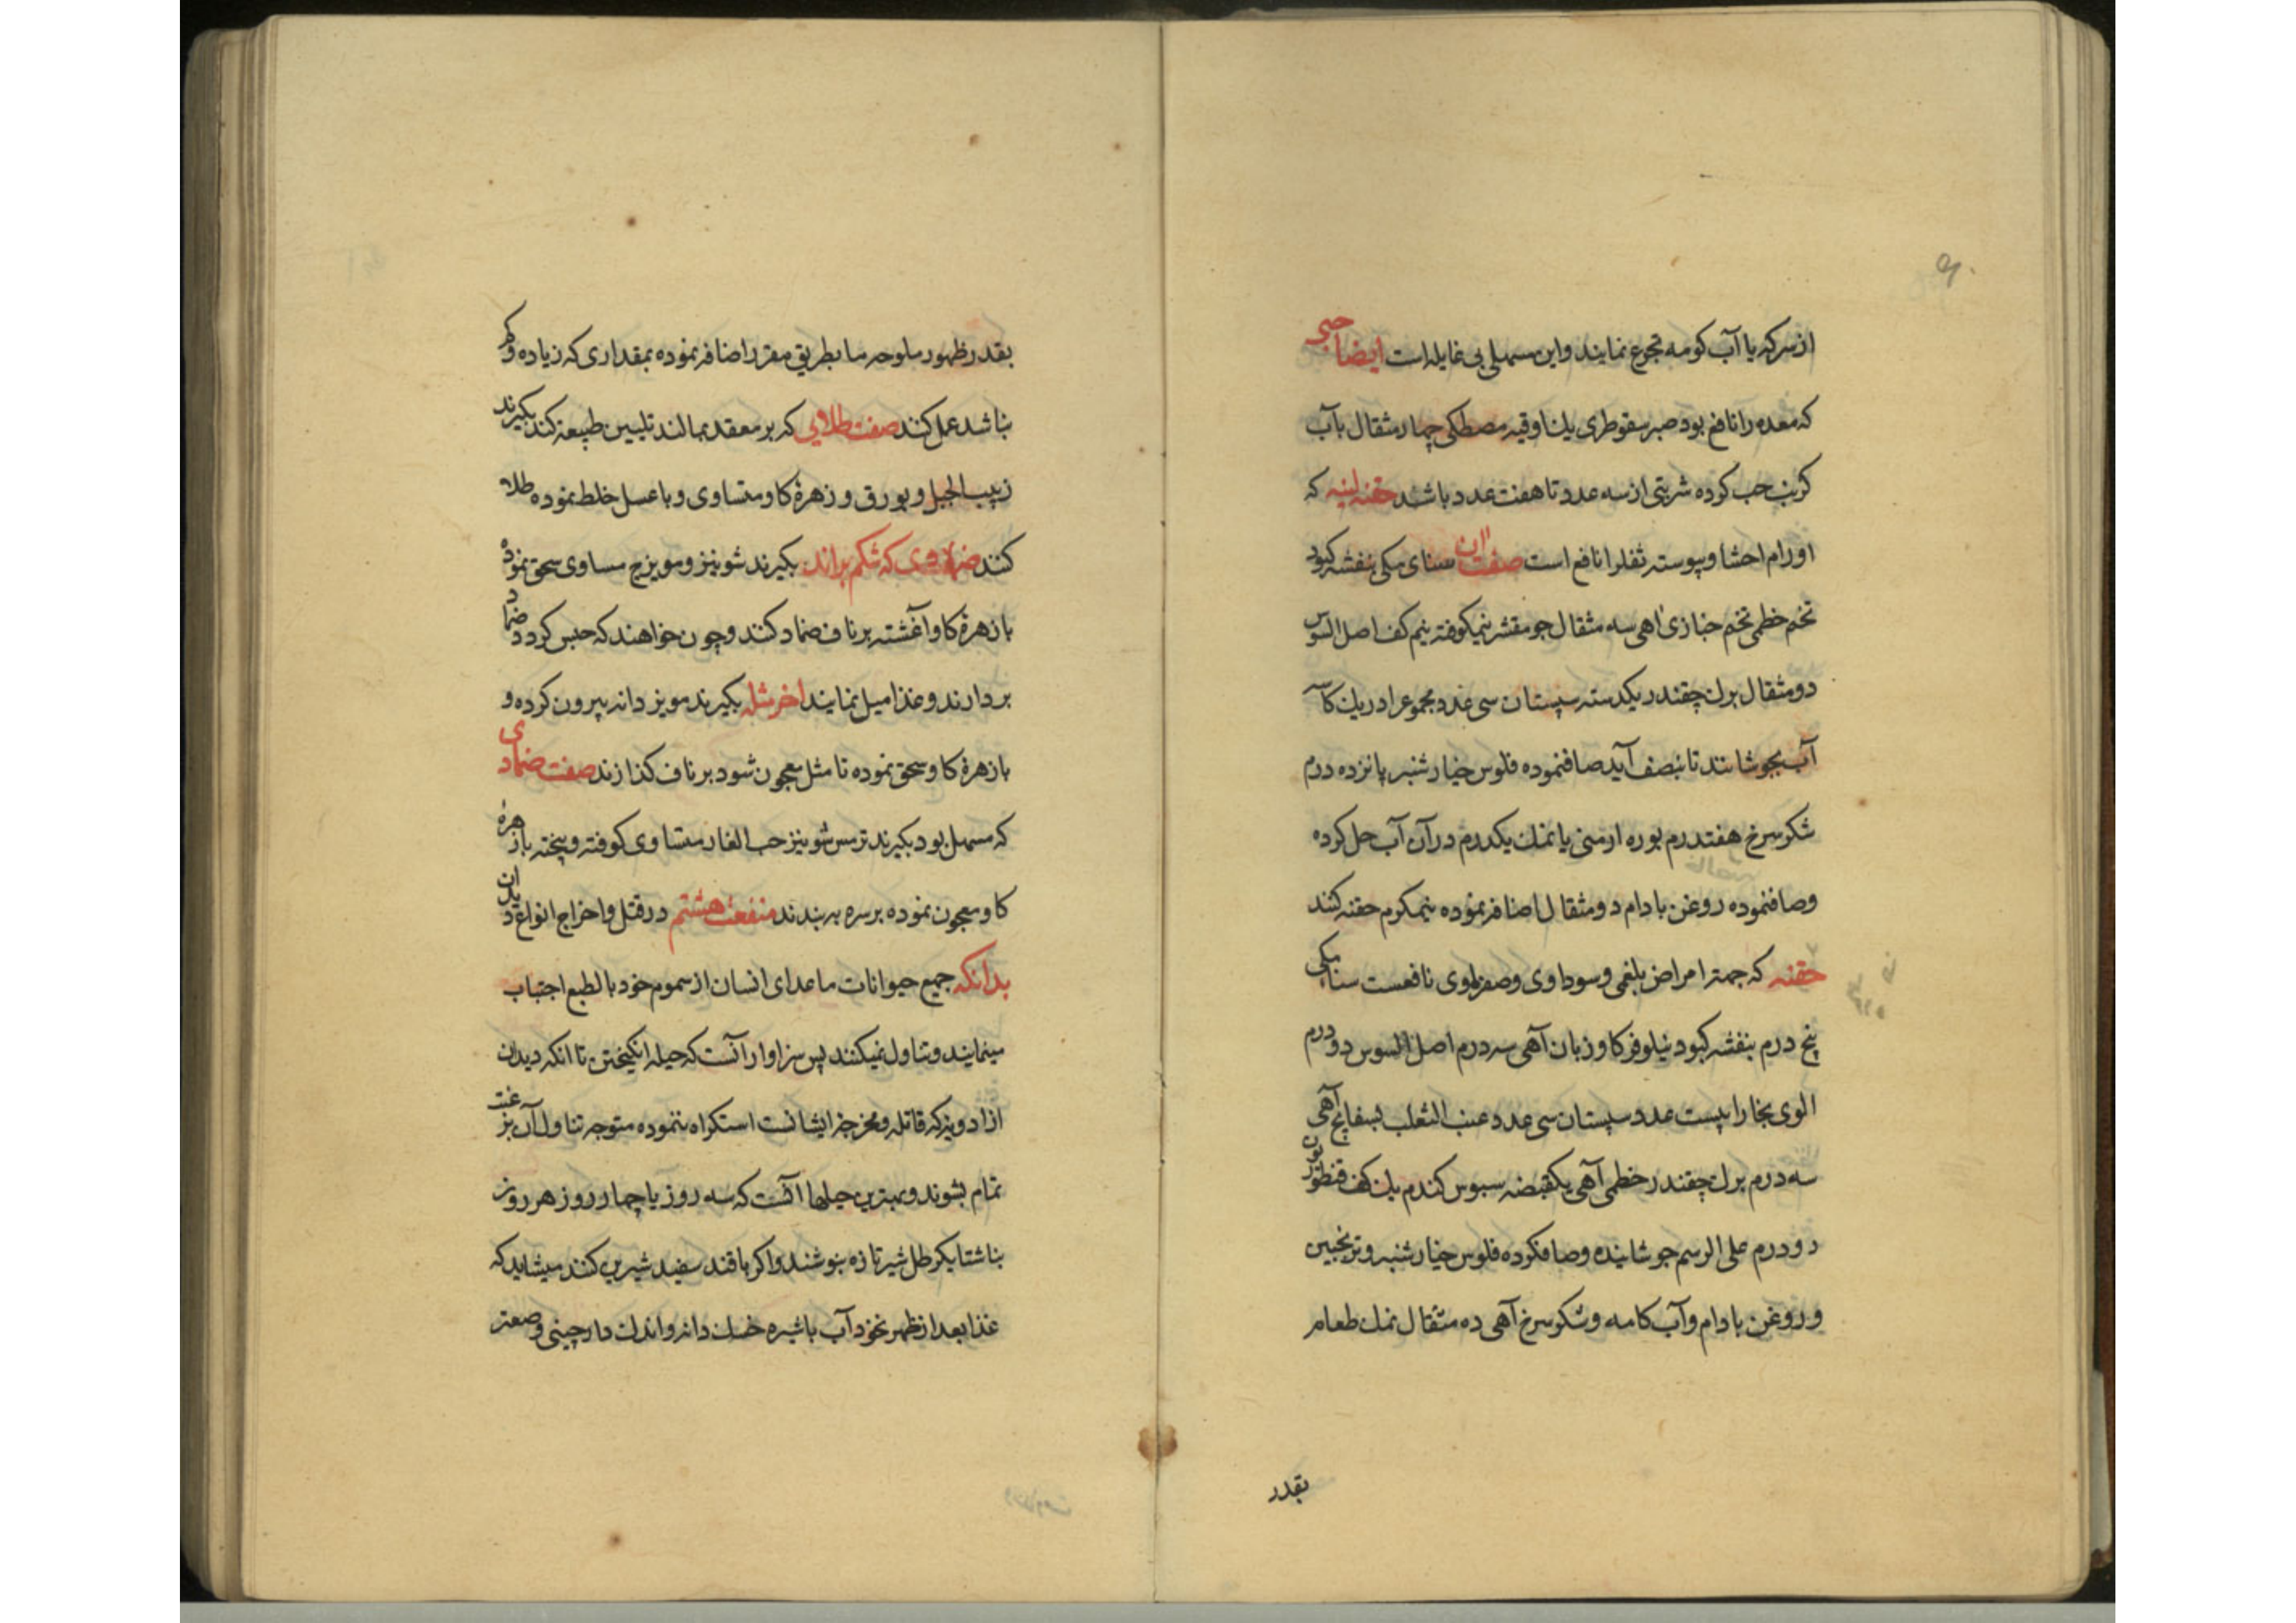 از سرکه یا آب کومه تجرع نمایند و این مسهلی بی غایله است ایضا حبی
که معده را نافع بود صبر سقوطری یك اوقیه مصطکی چهار مثقال بآب
کرنب حب کرده شربتی از سه عدد تا هفت عدد باشد حقنه لینه که
اورام احشا و پیوسته ثفل را نافع است صفت ان سنای مکی بنفشه کبود
تخم خطمی تخم خبازی اهی سه مثقال جو مقشر نیمکوفته نیم کف اصل السوس
دو مثقال برك چقندر یکدسته سپستان سی عدد مجموع را در یك کاسه
آب بجوشانند تا بنصف آید صافنموده فلوس خیارشنبر پانزده درم
شکر سرخ هفتدرم بوره ارمنی یا نمك یکدرم در آن آب حل کرده
و صافنموده روغن بادام دو مثقال اضافه نموده نیمکرم حقنه کنند
حقنه که جمته امراض بلغمی و سوداوی و صفراوی نافعست سنا مکی
پنج درم بنفشه کبود نیلوفر کاوزبان آهی سه درم اصل السوس دو درم
الوی بخارا بیست عدد سپستان سی عدد عنب الثعلب بسفایج آهی
سه درم برك چقندر خطمی آهی یکقبضه سبوس کندم یك کف قنطوریون
دو درم علی الرسم جوشانیده و صافکرده فلوس خیارشنبر و ترنجبین
و روغن بادام و آب کامه و شکر سرخ آهی ده مثقال نمك طعام
بقدر
بقدر ظهور ملوحه ما بطریق مقرر اضافه نموده بمقداری که زیاده و کم
نباشد عمل کنند صفت طلایی که بر مقعد بمالند تلیین طبیعه کند بکیرند
زبیب الجبل و بورق و زهرۀ کاو متساوی و با عسل خلط نموده طلا
کنند ضمادی که شکم براند بکیرند شونیز و مویزج مساوی سحق نموده
با زهرۀ کاو آغشته بر ناف ضماد کنند و چون خواهند که حبس کردد ضماد
بردارند و غذا میل نمایند اخر مثله بکیرند مویز دانه بیرون کرده و
با زهرۀ کاو سحق نموده تا مثل معجون شود بر ناف کذارند صفت ضمادی
که مسهل بود بکیرند ترمس شونیز حب الغار متساوی کوفته و پیخته با زهرۀ
کاو معجون نموده بر سره به بندند منفعت هشتم در قتل و اخراج انواع دیدان
بدانکه جمیع حیوانات ماعدای انسان از سموم خود بالطبع اجتناب
مینمایند و تناول نمیکنند پس سزاوار آنست که حیله انکیختن تا انکه دیدان
از ادویه که قاتله و مخرجه ایشانست استکراه ننموده متوجه تناول آن برغبت
تمام بشوند و بهترین حیلها آنست که سه روز یا چهار روز هر روز
بناشتا یکرطل شیر تازه بنوشند و اکر با قند سفید شیرین کنند میشاید که
غذا بعد از ظهر نخود آب با شیره خسك دانه و اندك دارچینی و صعتر